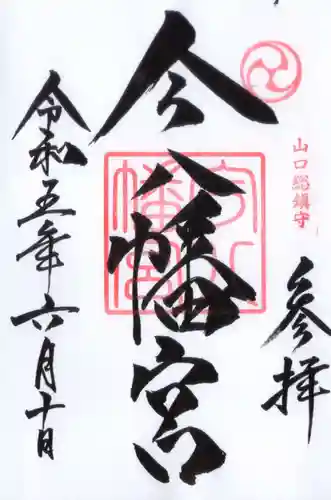 参拝
山口総鎮守
今八幡宮
令和五年六月十日